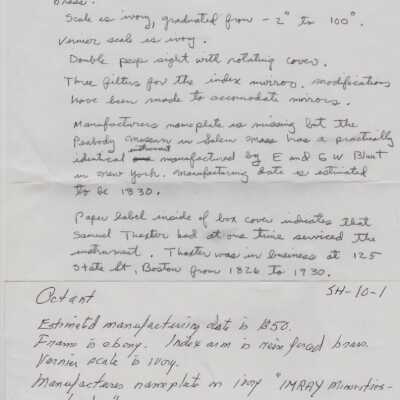 brass.
Scale is ivory, graduated from -2° to 100°.
Vernier scale is ivory.
Double peep sight with rotating cover.
Three filters for the index mirror. modifications
have been made to accomodate mirrors.
Manufacturers nameplate is missing but the
Peabody museum in Salem Mass has a practically
identical instrument manufactured by E and G W Blunt
in New York. Manufacturing date is estimated
to be 1830.
Paper label inside of box cover indicates that
Samuel Thaxter had at one time serviced the
instrument. Thaxter was in business at 125
State St, Boston from 1826 to 1930.
Octant SH-10-1
Estimated manufacturing date is 1850.
Frame is ebony. Index arm is reinforced brass.
Vernier scale is ivory.
Manufactures nameplate on ivory "IMRAY Minorities-